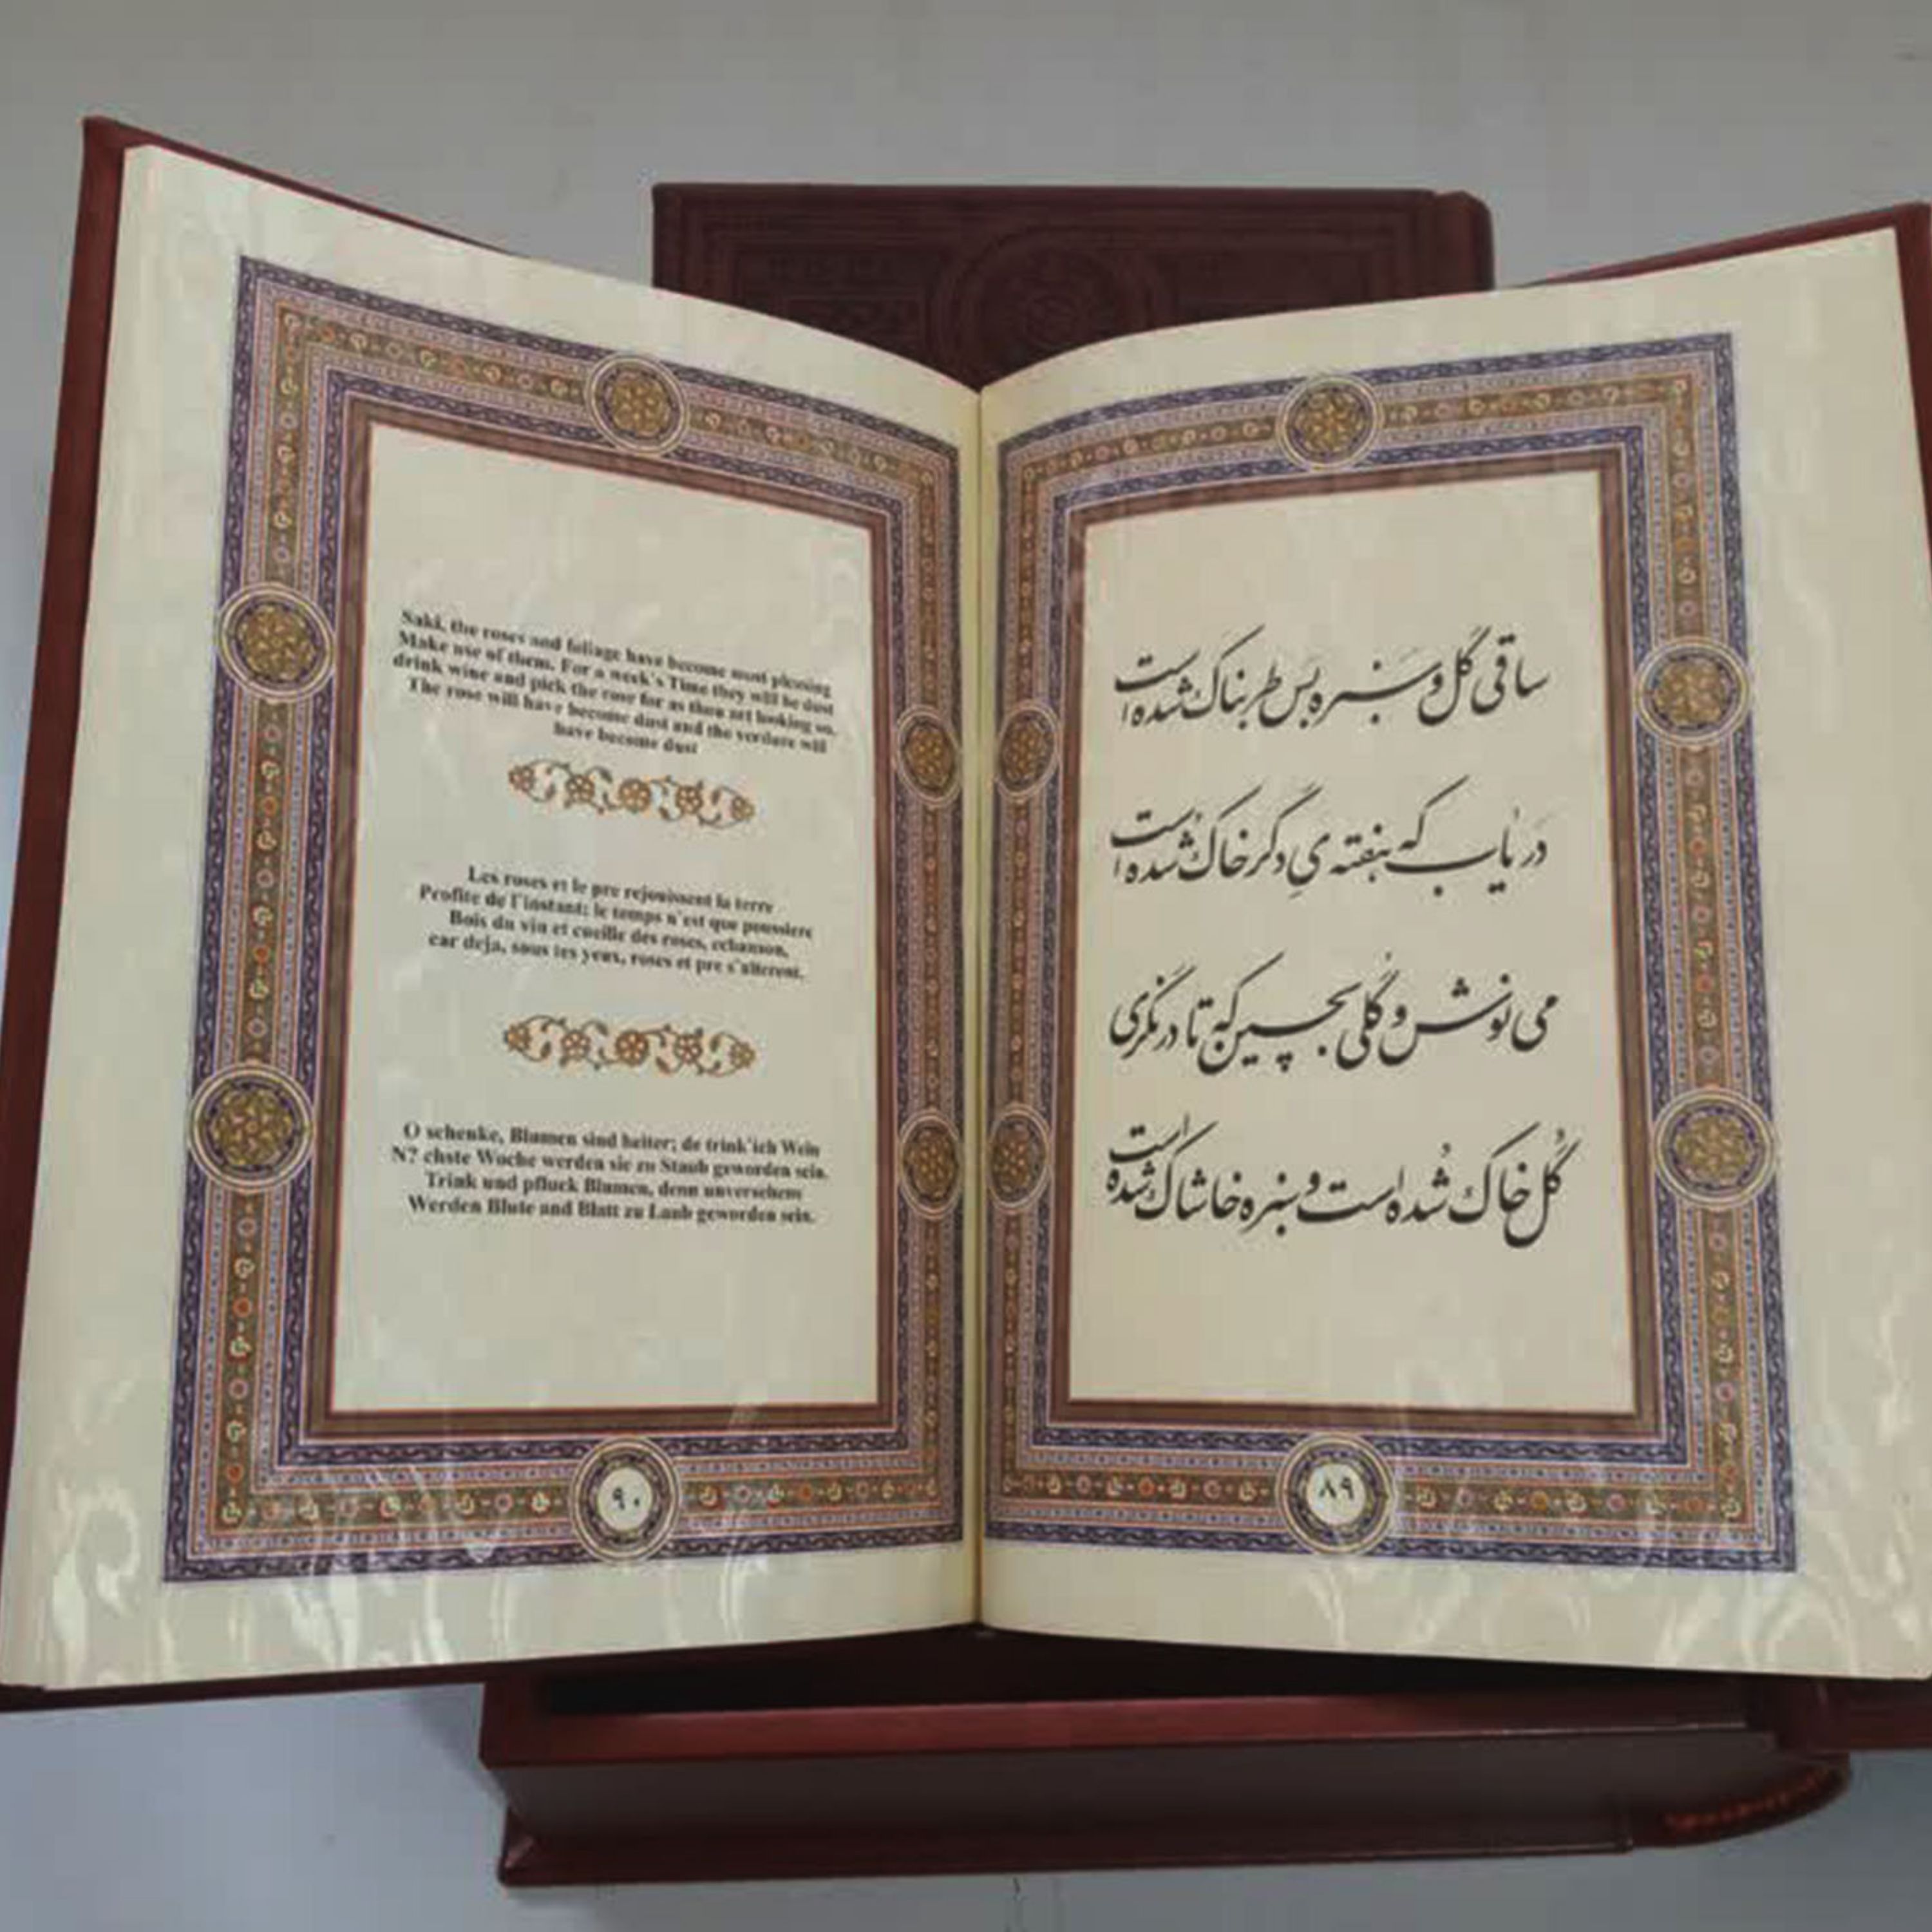 ساقی گُل و سَبزه بَس طَرَبناک شُده است
دَریاب که هفته‌یِ دگر خاک شُده است
می نوش و گُلی بچین که تا درنگری
گُل خاک شُده است و سبزه خاشاک شده است
۸۹
Saki, the roses and foliage have become most pleasing
Make use of them. For a week's Time they will be dust
drink wine and pick the rose for as thou art looking so.
The rose will have become dust and the verdure will
have become dust
Les roses et le pre rejouissent la terre
Profite de l'instant: le temps n'est que poussiere
Bois du vin et cueille des roses, echanson,
car deja, sous tes yeux, roses et pre s'alterent.
O schenke, Blumen sind heiter; de trink'ich Wein
N? chste Woche werden sie zu Staub geworden sein.
Trink und pfluck Blumen, denn unversehem
Werden Blute and Blatt zu Laub geworden sein.
۹۰